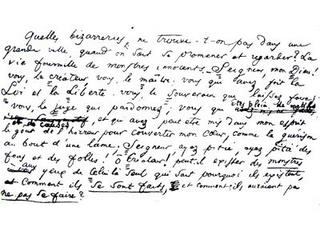 Quelles bizarreries ne trouve-t-on pas dans une
grande ville, quand on sait se promener et regarder! La
vie fourmille de monstres innocents. Seigneur, mon Dieu!
vous, le créateur, vous, le maître, vous qui avez fait la
Loi et la Liberté, vous, le souverain qui laissez faire,
vous, le juge qui pardonnez, vous qui êtes plein de motifs
et de causes, et qui avez peut-être mis dans mon esprit
le goût de l'horreur pour convertir mon cœur, comme la guérison
au bout d'une lame. Seigneur ayez pitié, ayez pitié des
fous et des folles! Ô Créateur! peut-il exister des monstres
aux yeux de celui-là seul qui sait pourquoi ils existent,
et comment ils se sont faits, et comment ils auraient pu
ne pas se faire?